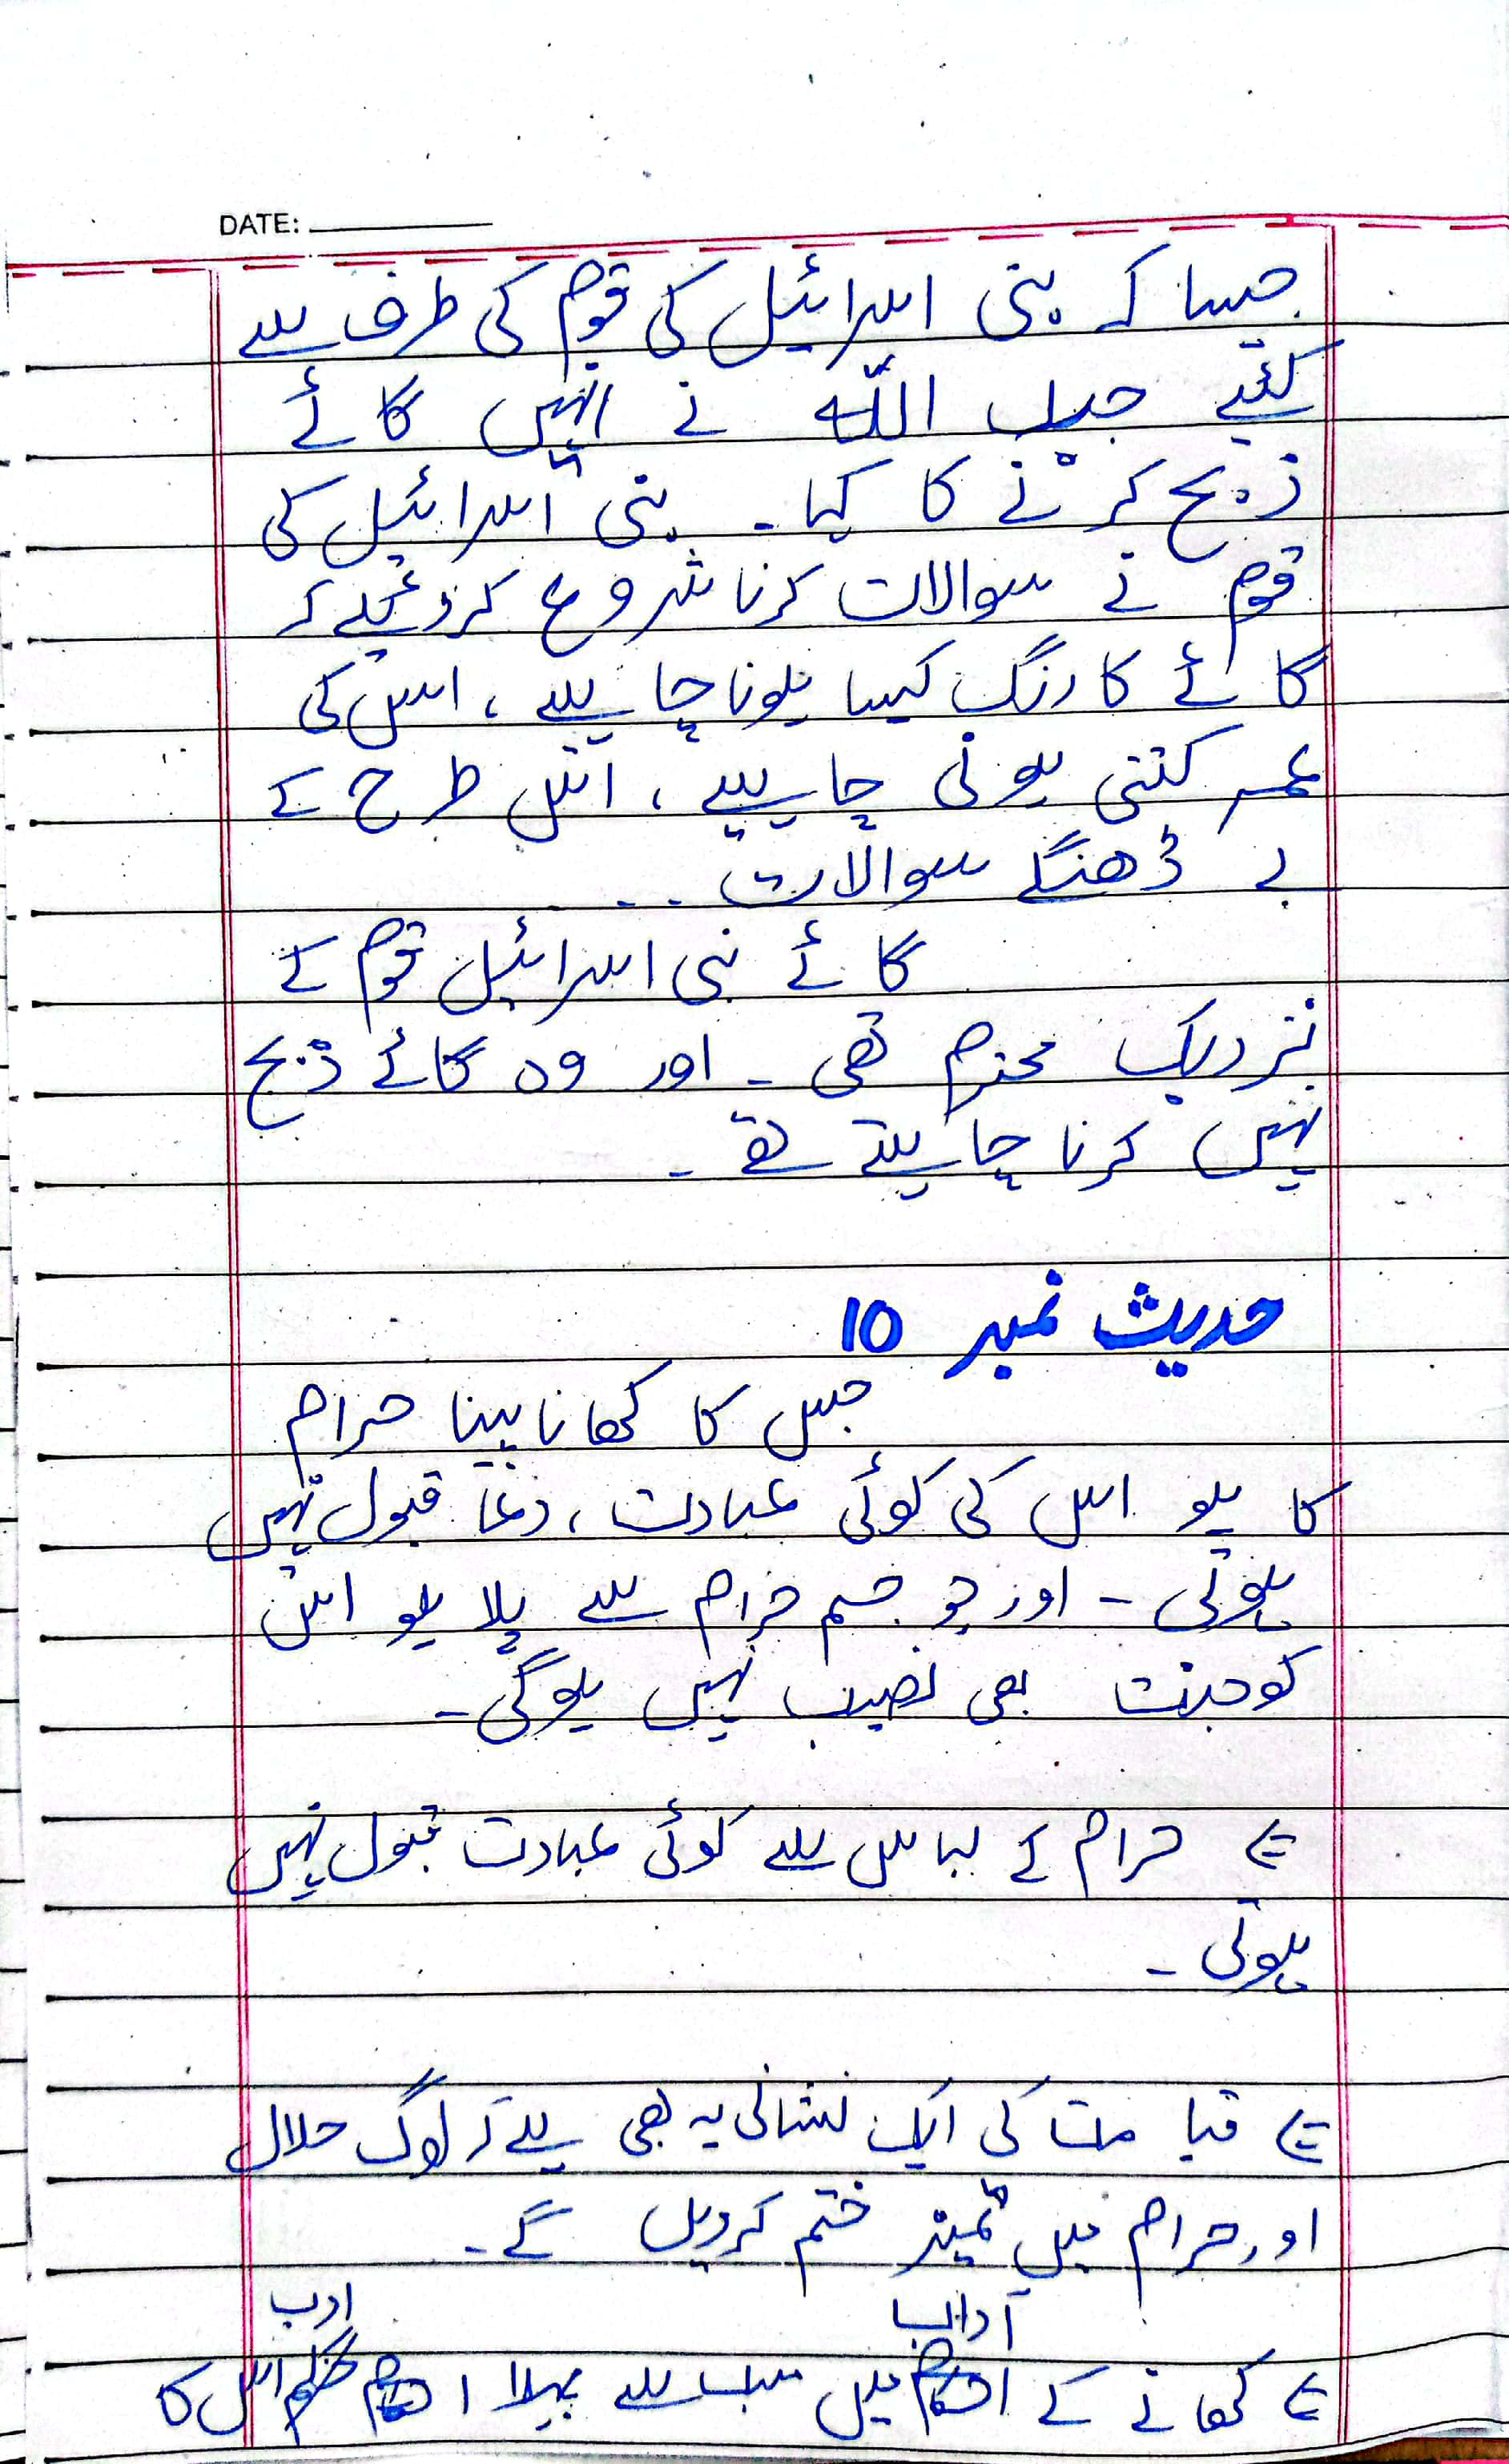 DATE:
جیسا کہ بنی اسرائیل کی قوم کی طرف سے
کئیے جب اللّٰہ نے انہیں گائے
ذبح کرنے کا کہا۔ بنی اسرائیل کی
قوم نے سوالات کرنا شروع کردئیے کہ
گائے کا رنگ کیسا ہونا چاہیے، اس کی
عمر کتنی ہونی چاہیے، اس طرح کے
بے ڈھنگے سوالات...
گائے بنی اسرائیل قوم کے
نزدیک محترم تھی۔ اور وہ گائے ذبح
نہیں کرنا چاہتے تھے۔
حدیث نمبر 10
جس کا کھانا پینا حرام
کا ہو اس کی کوئی عبادت، دعا قبول نہیں
ہوتی۔ اور جو جسم حرام سے پلا ہو اس
کو جنت بھی نصیب نہیں ہوگی۔
حرام کے لباس سے کوئی عبادت قبول نہیں
ہوتی۔
قیامت کی ایک نشانی یہ بھی ہے کہ لوگ حلال
اور حرام میں تمیز ختم کردیں گے۔
آداب ادب
کھانے کے میں سب سے پہلا اس کا